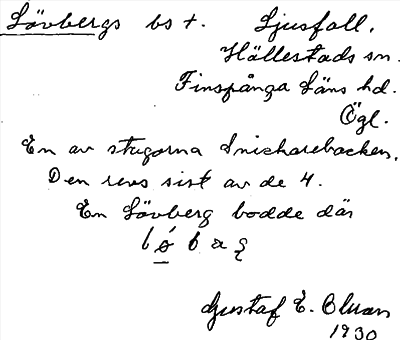 Lövbergs bs +. Ljusfall,
Hällestads sn.
Finspånga läns hd.
Ögl.
En av stugorna Snickarebacken.
Den revs sist av de 4.
En Lövberg bodde där
Gustaf E. Olson
1930